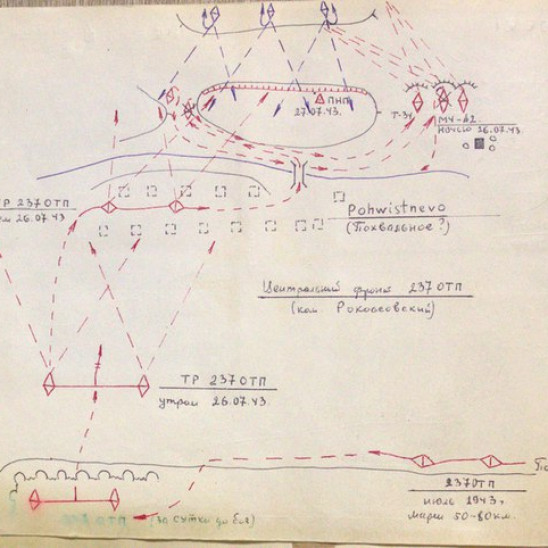 ПНП
27.07.43.
Т-34
МЧ-42.
ночью 26.07.43
ТР 237 ОТП
26.07.43
Pohwistnevo
(Похвальное?)
Центральный фронт 237 ОТП
(ком Рокоссовский)
ТР 237 ОТП
утром 26.07.43.
237 ОТП
июль 1943г
марш 50-80 км.
ОТП (за сутки до боя)